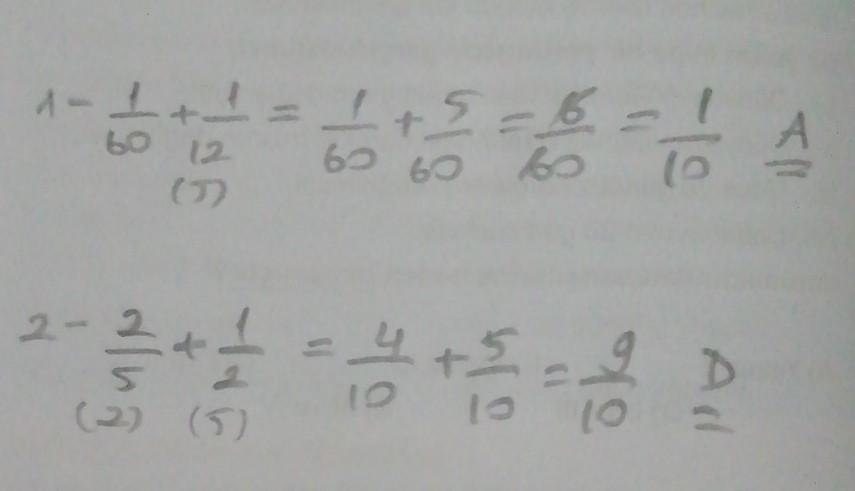 1- 1/60 + 1/12 = 1/60 + 5/60 = 6/60 = 1/10 A
(5)
2- 2/5 + 1/2 = 4/10 + 5/10 = 9/10 D
(2) (5)